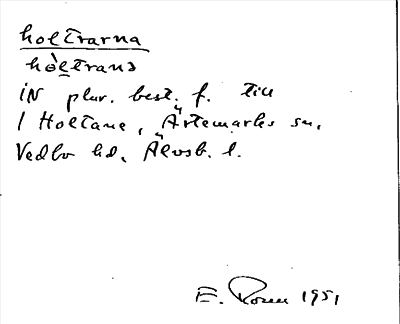 holtrarna
hòltrans
IN plur. best. f. till
1 Holtane, Ärtemarks sn,
Vedbo hd, Älvsb. l.
E. 1951